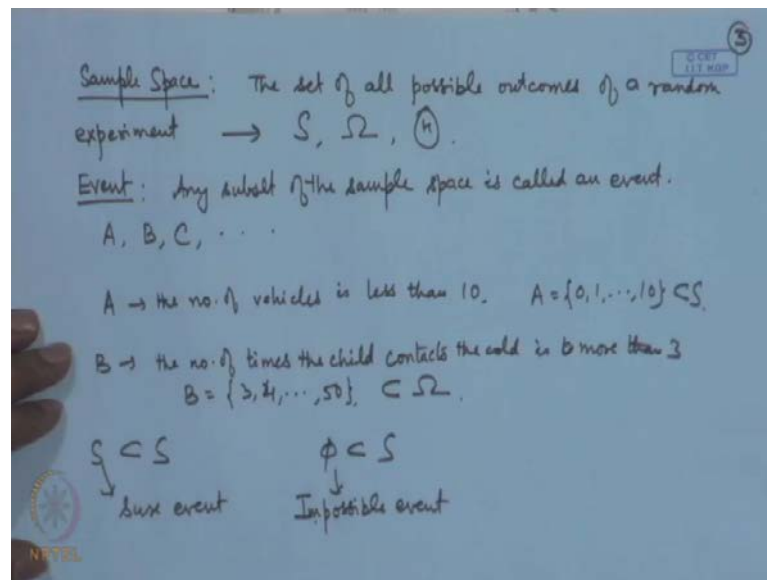 3
© CET
I.I.T. KGP
Sample Space: The set of all possible outcomes of a random
experiment → S, Ω, Ⓗ.
Event: Any subset of the sample space is called an event.
A, B, C, . . .
A → the no. of vehicles is less than 10. A = {0, 1, ..., 10} ⊂ S.
B → the no. of times the child contacts the cold is more than 3
B = {3, 4, ..., 50} ⊂ Ω.
S ⊂ S ϕ ⊂ S
Sure event Impossible event
NPTEL